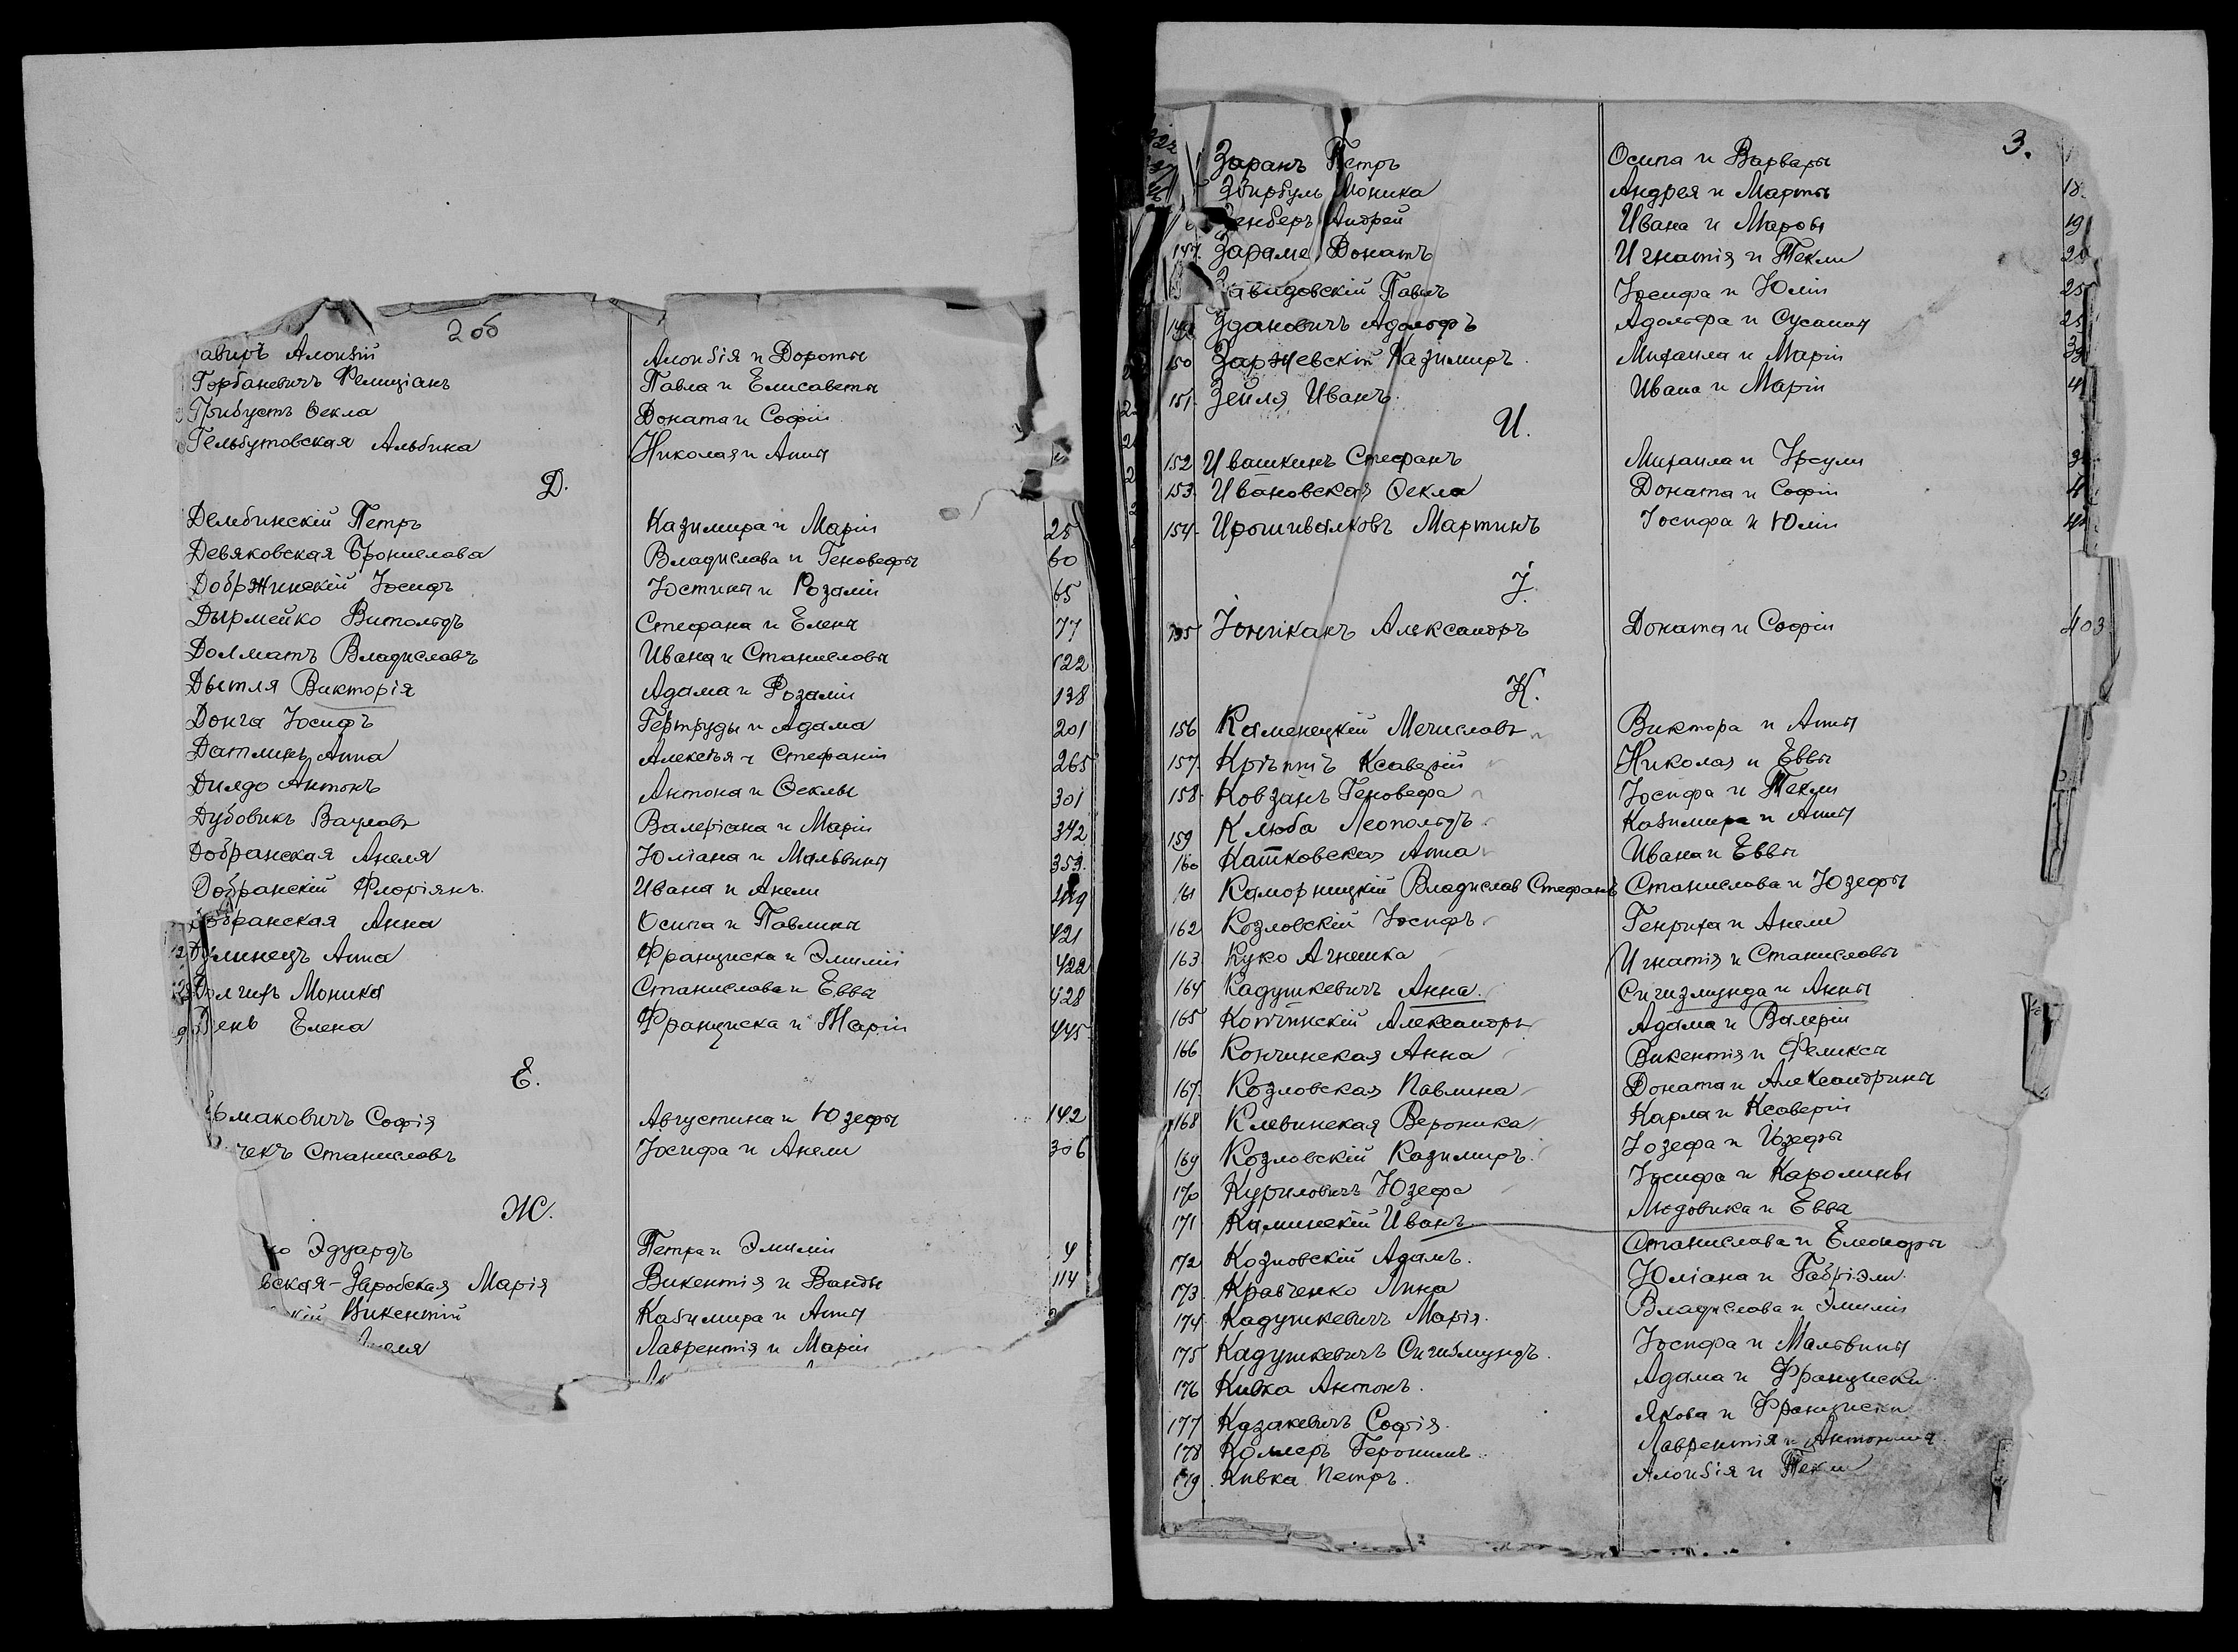 2 об
Алоизій Алоизія и Дороты
Горбаневичъ Фелиціанъ Павла и Елисаветы
Грибустъ Ѳекла Доната и Софіи
Гельбутовская Альбина Николая и Анны
Д.
Дембинскій Петръ Казимира и Маріи 28
Девяковская Брониславa Владислава и Геновефы 60
Добржинскій Іосифъ Юстина и Розаліи 65
Дырмейко Витольдъ Стефана и Елены 77
Долматъ Владиславъ Ивана и Станиславы 122
Дытля Викторія Адама и Розаліи 138
Донга Іосифъ Гертруды и Адама 201
Датлинъ Анна Алексѣя и Стефаніи 265
Дилдо Антонъ Антона и Ѳеклы 301
Дубовикъ Вацлавъ Валеріана и Маріи 342
Добранская Анеля Юліана и Мальвины 353.
Добранскій Флоріянъ. Ивана и Анели 419
Добранская Анна Осипа и Павлины 421
Дулинецъ Анна Франциска и Эмиліи 422
Долгихъ Моника Станислава и Еввы 428
День Елена Франциска и Маріи 445
Е.
маковичъ Софія Августина и Юзефы 142
чекъ Станиславъ Іосифа и Анели 306
Ж.
Эдуардъ Петра и Эмиліи 4
вская-Заробская Марія Викентія и Ванды 114
кій Викентій Казимира и Анны
Лаврентія и Маріи
3.
Заранъ Петръ Осипа и Варвары
Збирбуль Моника Андрея и Марты 18.
Зенберъ Андрей Ивана и Маровы 19
147. Зараме Донатъ Игнатія и Текли 20
Завидовскій Павелъ Іосифа и Юліи 25
149 Здановичъ Адольфъ Адольфа и Сусанны 25
150 Заржевскій Казимиръ Михаила и Маріи
151. Зейля Иванъ. Ивана и Маріи
И.
152 Ивашкинъ Стефанъ Михаила и Урсули
153. Ивановская Ѳекла Доната и Софіи
154. Ирошиваловъ Мартинъ Іосифа и Юліи
І.
155 Іонниканъ Александръ Доната и Софіи 403
К.
156 Каменецкій Мечиславъ Виктора и Анны
157. Кріъптъ Ксаверій Николая и Еввы
158. Ковзанъ Геновефа Іосифа и Текли
159 Клюба Леопольдъ Казимира и Анны
160 Катковская Анна Ивана и Еввы
161 Каморницкій Владислав Стефанъ Станислава и Юзефы
162 Козловскій Іосифъ Генриха и Анели
163 Куко Агнешка Игнатія и Станиславы
164 Кадушкевичъ Анна. Сигизмунда и Анны
165 Континскій Александръ Адама и Валеріи
166 Кончинская Анна Викентія и Феликсы
167. Козловская Павлина Доната и Александрины
168 Клевинская Вероника Карла и Ксаверіи
169 Козловскій Казимиръ. Іозефа и Юзефы
170 Куриловичъ Юзефа Іосифа и Каролины
171 Каминскій Иванъ Людовика и Евва
172 Козловскій Адамъ. Станислава и Елеоноры
173. Кравченко Анна Юліана и Габріэли.
174. Кадушкевичъ Марія. Владислава и Эмиліи
175 Кадушкевичъ Сигизмундъ. Іосифа и Мальвины
176 Кивка Антонъ. Адама и Франциски
177 Казакевичъ Софія. Якова и Франциски
178 Коллеръ Геронимъ. Лаврентія и Антонины
179. Кивка Петръ. Алоизія и Текли